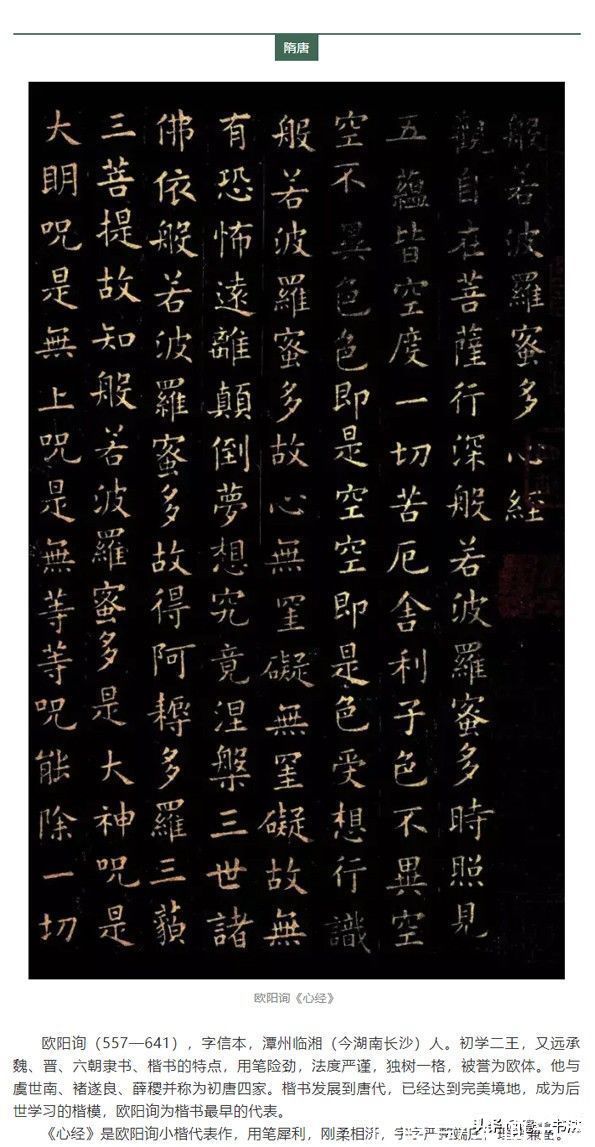 隋唐
般若波羅蜜多心経
觀自在菩薩行深般若波羅蜜多時照見
五蘊皆空度一切苦厄舍利子色不異空
空不異色色即是空空即是色受想行識
般若波羅蜜多故心無罣礙無罣礙故無
有恐怖遠離顛倒夢想究竟涅槃三世諸
佛依般若波羅蜜多故得阿耨多羅三藐
三菩提故知般若波羅蜜多是大神呪是
大明呪是無上呪是無等等呪能除一切
欧阳询《心经》
欧阳询（557—641），字信本，潭州临湘（今湖南长沙）人。初学二王，又远承
魏、晋、六朝隶书、楷书的特点，用笔险劲，法度严谨，独树一格，被誉为欧体。他与
虞世南、褚遂良、薛稷并称为初唐四家。楷书发展到唐代，已经达到完美境地，成为后
世学习的楷模，欧阳询为楷书最早的代表。
《心经》是欧阳询小楷代表作，用笔犀利，刚柔相济，